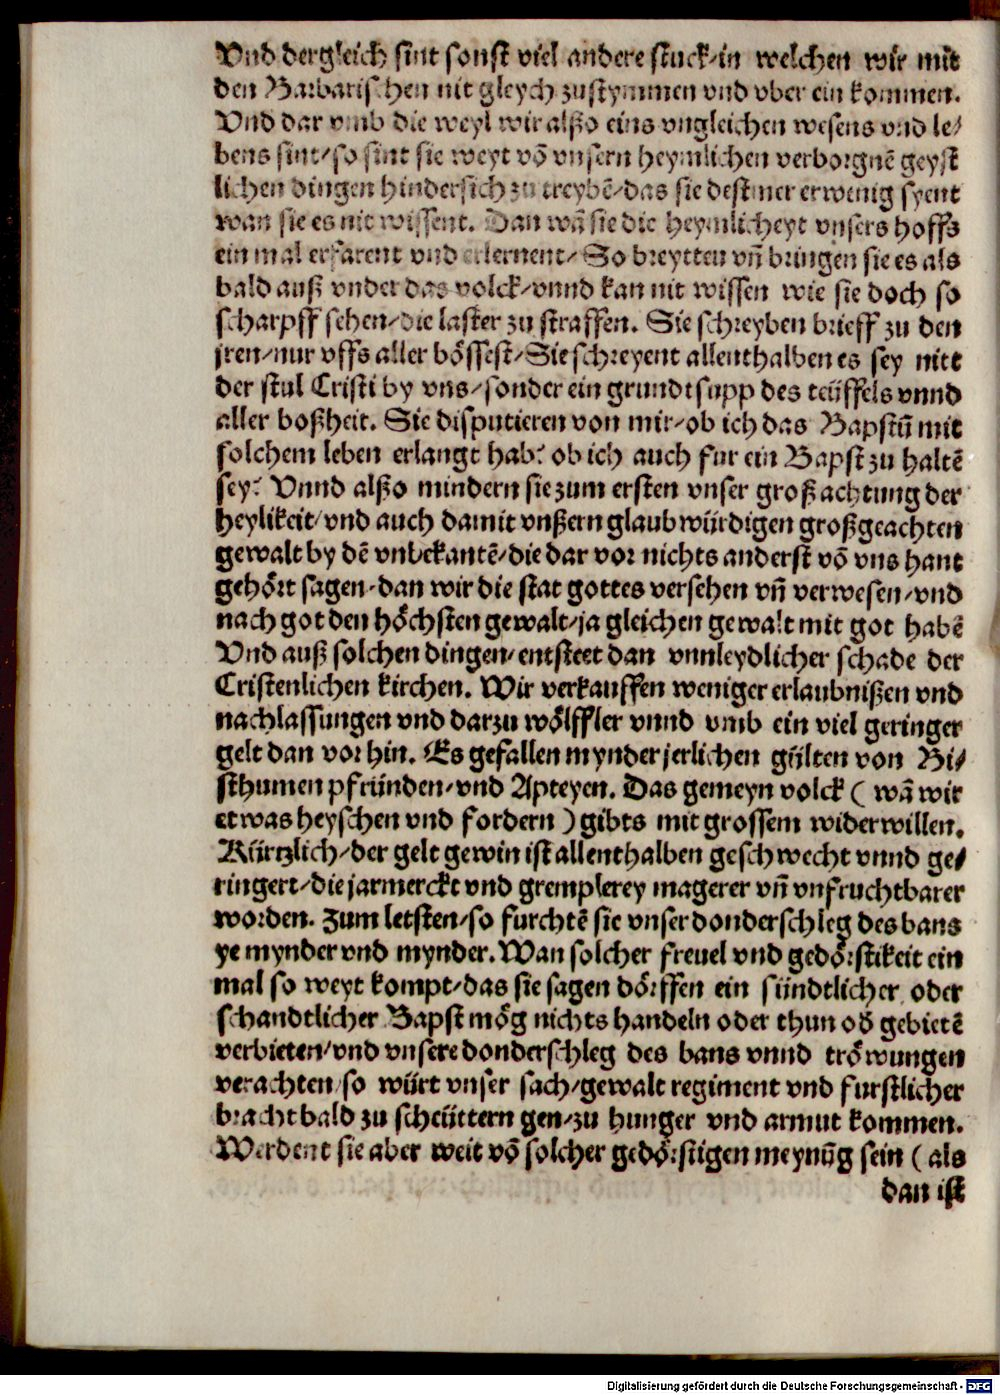 Vnd dergleich sint sonst viel andere stuck/in welchen wir mit
den Barbarischen nit gleych zustymmen vnd vber ein kommen.
Vnd dar vmb die weyl wir alßo eins vngleichen wesens vnd le/
bens sint/so sint sie weyt võ vnsern heymlichen verborgnẽ geyst
lichen dingen hindersich zu treybẽ/das sie dest mer erwenig syent
wan sie es nit wissent. Dan wã sie die heymlicheyt vnsers hoffs
ein mal erfarent vnd erlernent/ So breytten vñ bringen sie es als
bald auß vnder das volck/vnnd kan nit wissen wie sie doch so
scharpff sehen/die laster zu straffen. Sie schreyben brieff zu den
jren/nur vffs aller bössest/Sie schreyent allenthalben es sey nitt
der stul Cristi by vns/sonder ein grundtsupp des teüffels vnnd
aller boßheit. Sie disputieren von mir/ob ich das Bapstũ mit
solchem leben erlangt hab? ob ich auch fur ein Bapst zu haltẽ
sey? Vnnd alßo mindern sie zum ersten vnser groß achtung der
heylikeit/vnd auch damit vnßern glaubwürdigen großgeachten
gewalt by dẽ vnbekantẽ/die dar vor nichts anderst võ vns hant
gehört sagen/dan wir die stat gottes versehen vñ verwesen/vnd
nach got den höchsten gewalt/ja gleichen gewalt mit got habẽ
Vnd auß solchen dingen/entsteet dan vnnleydlicher schade der
Cristenlichen kirchen. Wir verkauffen weniger erlaubnißen vnd
nachlassungen vnd darzu wölffler vnnd vmb ein viel geringer
gelt dan vor hin. Es gefallen mynder jerlichen gülten von Bi/
sthumen pfründen/vnd Apteyen. Das gemeyn volck ( wã wir
etwas heyschen vnd fordern ) gibts mit grossem widerwillen.
Kürtzlich/der gelt gewin ist allenthalben geschwecht vnnd ge/
ringert/die jarmerckt vnd gremplerey magerer vñ vnfruchtbarer
worden. Zum letsten/so furchtẽ sie vnser donderschleg des bans
ye mynder vnd mynder. Wan solcher freuel vnd gedörstikeit ein
mal so weyt kompt/das sie sagen dörffen ein sündtlicher oder
schandtlicher Bapst mög nichts handeln oder thun oď gebietẽ
verbieten/vnd vnsere donderschleg des bans vnnd tröwungen
verachten/so würt vnser sach/gewalt regiment vnd furstlicher
bracht bald zu scheüttern gen/zu hunger vnd armut kommen.
Werdent sie aber weit võ solcher gedörstigen meynũg sein ( als
dan ist
Digitalisierung gefördert durch die Deutsche Forschungsgemeinschaft - DFG